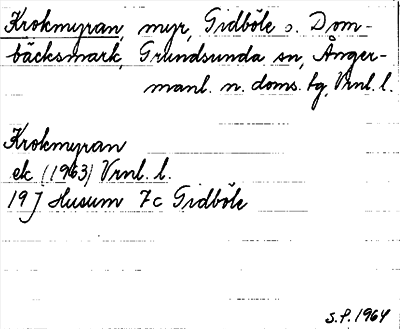 Krokmyran, myr, Gidböle o. Dom-
bäcksmark, Grundsunda sn, Ånger-
manl. n. doms. tg, Vrnl. l.
Krokmyran
ek (1963) Vrnl. l.
19 J Husum 7c Gidböle
S.P. 1964